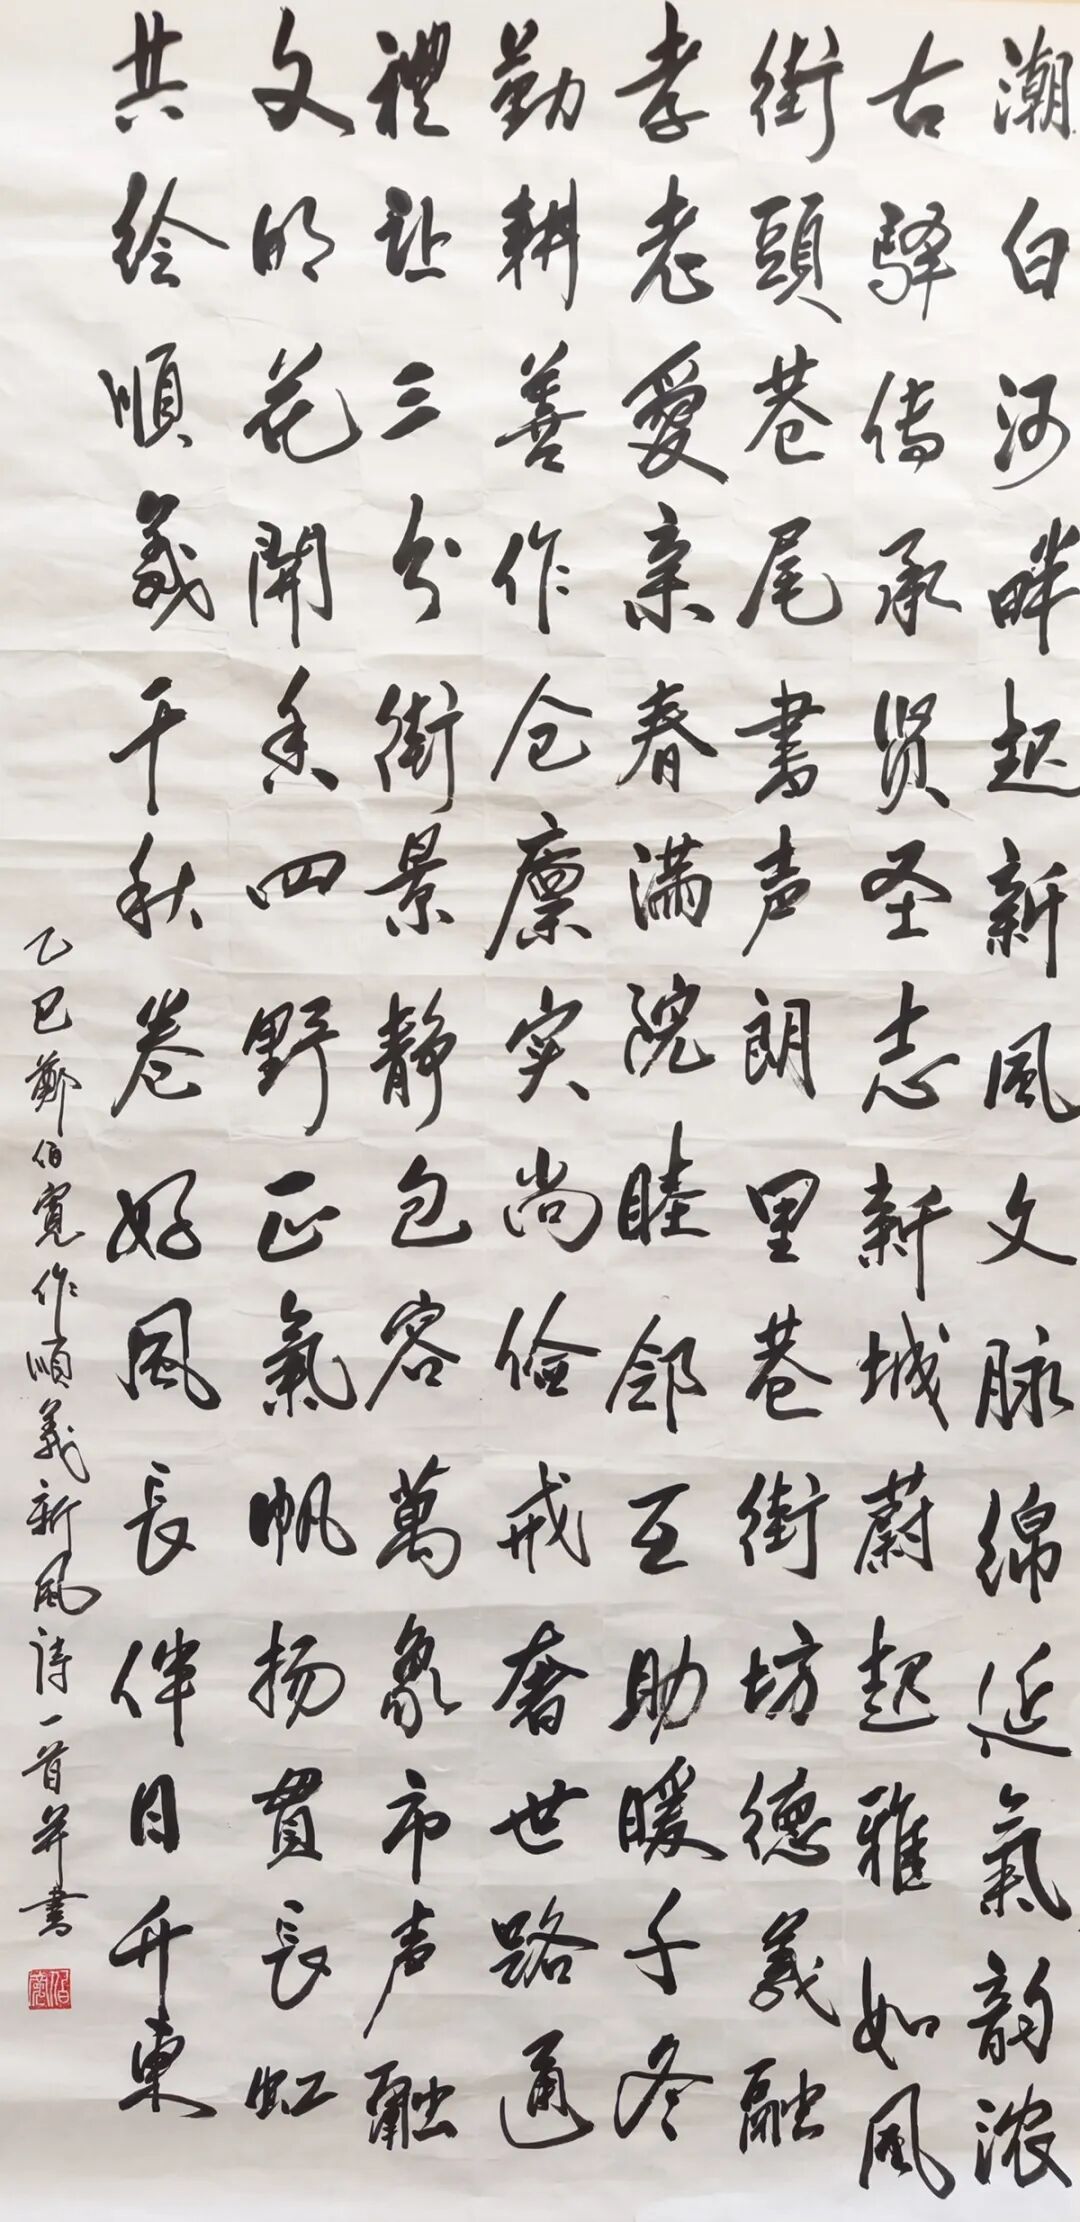 潮白河畔起新風文脉綿延氣韵浓
古驿传承贤圣志新城蔚起雅如風
街頭巷尾書声朗里巷街坊德義融
孝老愛亲春满院睦邻互助暖千冬
勤耕善作仓廪实尚俭戒奢世路通
禮让三分街景静包容萬象市声融
文明花開香四野正氣帆扬貫長虹
共绘順義千秋卷好風長伴日升東
乙巳鄭伯寬作順義新風诗一首并書